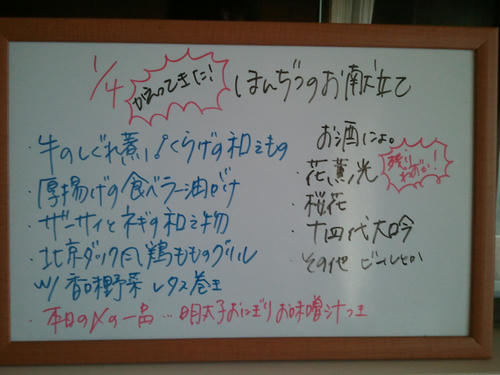 1/4 かえってきた! ほんじつのお献立て
・牛のしぐれ煮い。くらげの和えもの
・厚揚げの食べラー油がけ
・ザーサイとネギの和え物
・北京ダック風鶏もものグリル
香味野菜 レタス巻き
・本日の〆の一品…明太子おにぎりお味噌汁つき
お酒によ。
・花薫光 残りわずか!
・桜花
・十四代大吟
・その他 ビールとか